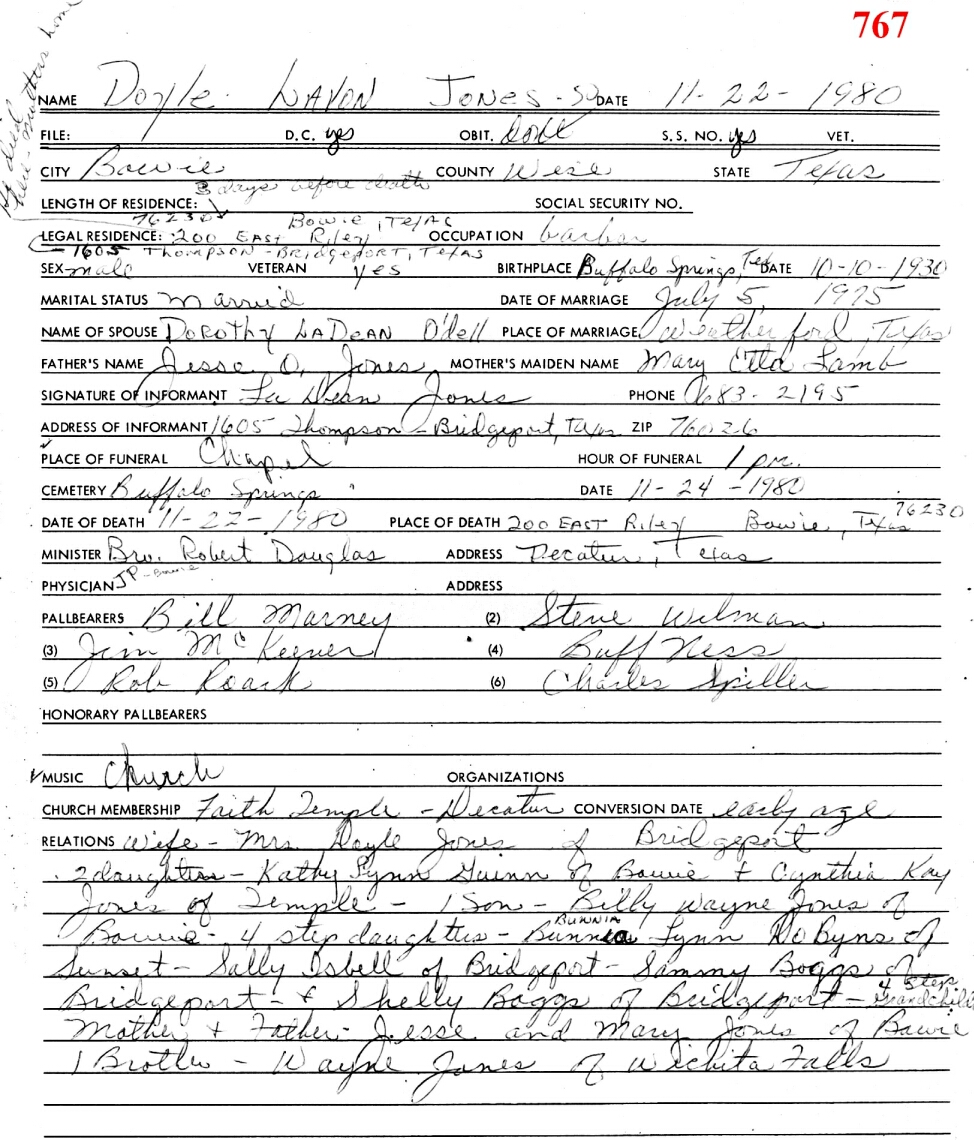 767
He died here mothers home
NAME Doyle LAVON JONES - 50 DATE 11-22-1980
FILE: / D.C. yes OBIT. done S.S. NO. yes VET.
CITY Bowie COUNTY Wise STATE Texas
3 days before death
LENGTH OF RESIDENCE: SOCIAL SECURITY NO.
76230 Bowie, Texas
LEGAL RESIDENCE: 200 EAST Riley OCCUPATION barber
1605 THOMPSON - BRIDGEPORT, TEXAS
SEX male VETERAN yes BIRTHPLACE Buffalo Springs, Tex DATE 10-10-1930
MARITAL STATUS Married DATE OF MARRIAGE July 5, 1975
NAME OF SPOUSE DOROTHY LADEAN O'dell PLACE OF MARRIAGE Weatherford, Texas
FATHER'S NAME Jesse O. Jones MOTHER'S MAIDEN NAME Mary Etta Lamb
SIGNATURE OF INFORMANT La Dean Jones PHONE 683-2195
ADDRESS OF INFORMANT 1605 Thompson - Bridgeport, Texas ZIP 76026
PLACE OF FUNERAL Chapel HOUR OF FUNERAL 1 p.m.
CEMETERY Buffalo Springs DATE 11-24-1980
DATE OF DEATH 11-22-1980 PLACE OF DEATH 200 EAST Riley Bowie, Texas 76230
MINISTER Bro. Robert Douglas ADDRESS Decatur, Texas
PHYSICIAN JP - Bowie ADDRESS
PALLBEARERS Bill Marney (2) Steve Wilman
(3) Jim McKeever (4) Buff Ness
(5) Rob Roark (6) Charles Spiller
HONORARY PALLBEARERS
MUSIC Church ORGANIZATIONS
CHURCH MEMBERSHIP Faith Temple - Decatur CONVERSION DATE early age
RELATIONS Wife - Mrs. Doyle Jones of Bridgeport
2 daughters - Kathy Lynn Guinn of Bowie + Cynthia Kay
Jones of Temple - 1 Son - Billy Wayne Jones of
BUNNIA
Bowie - 4 step daughters - Bunnia Lynn DoByns of
Sunset - Sally Isbell of Bridgeport - Sammy Boggs of
Bridgeport - + Shelly Boggs of Bridgeport - 4 step Grandchildren
Mother + Father - Jesse and Mary Jones of Bowie
1 Brother - Wayne Jones of Wichita Falls